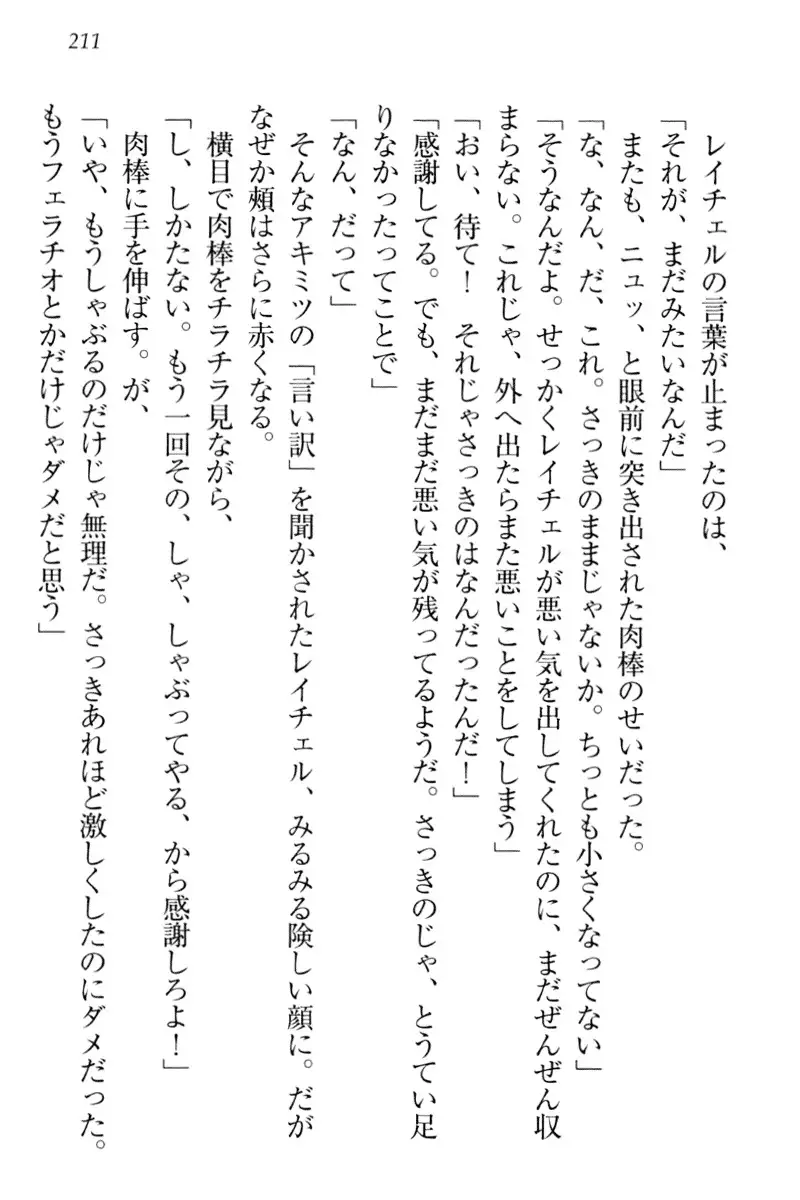 211
レイチェルの言葉が止まったのは、
「それが、まだみたいなんだ」
またも、ニュッ、と眼前に突き出された肉棒のせいだった。
「な、なん、だ、これ。さっきのままじゃないか。ちっとも小さくなってない」
「そうなんだよ。せっかくレイチェルが悪い気を出してくれたのに、まだぜんぜん収
まらない。これじゃ、外へ出たらまた悪いことをしてしまう」
「おい、待て！　それじゃさっきのはなんだったんだ！」
「感謝してる。でも、まだまだ悪い気が残ってるようだ。さっきのじゃ、とうてい足
りなかったってことで」
「なん、だって」
そんなアキミツの「言い訳」を聞かされたレイチェル、みるみる険しい顔に。だが
なぜか頰はさらに赤くなる。
横目で肉棒をチラチラ見ながら、
「し、しかたない。もう一回その、しゃ、しゃぶってやる、から感謝しろよ！」
肉棒に手を伸ばす。が、
「いや、もうしゃぶるのだけじゃ無理だ。さっきあれほど激しくしたのにダメだった。
もうフェラチオとかだけじゃダメだと思う」